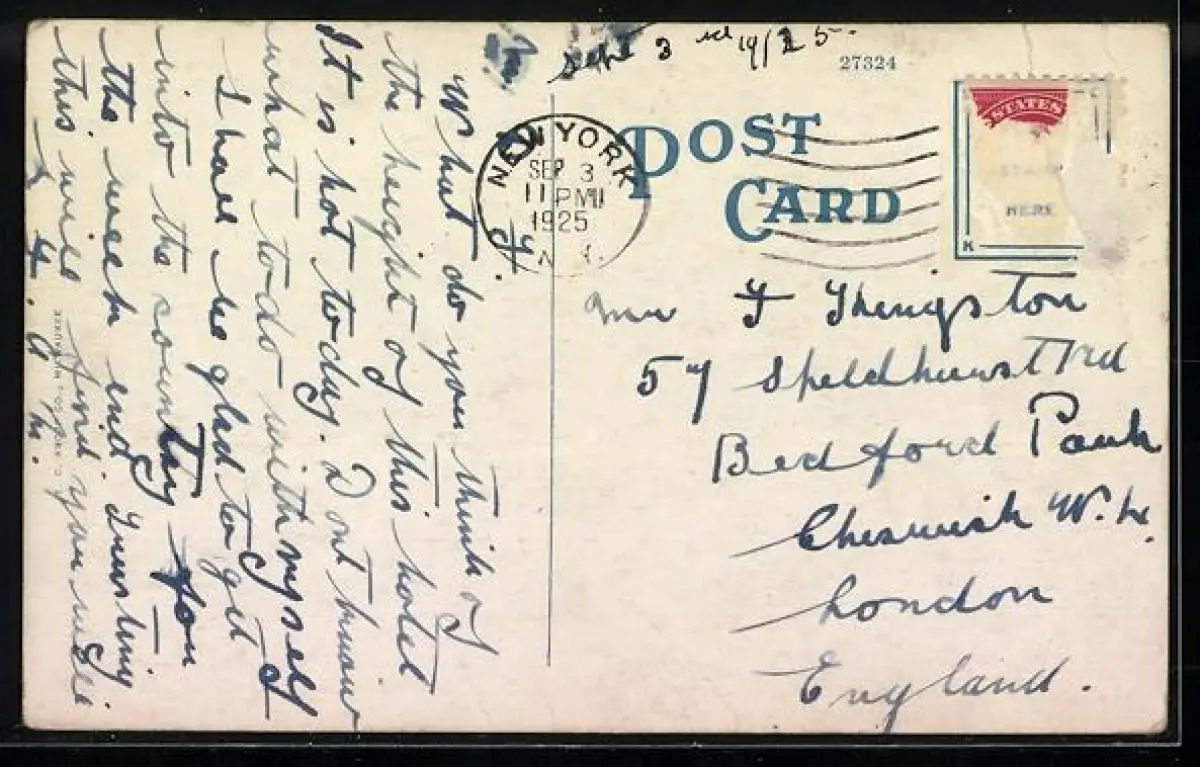 Sept 3rd 19/25.
27324
POST
CARD
STATES
HERE
K
NEW YORK
SEP 3
11 PM
1925
N.Y.
What do you think of
the height of this hotel
It is hot today. Dont know
what to do with myself I
shall be glad to get
into the country for
the week end. Trusting
this will find you
F
57 Speldhurst Rd
Bedford Park
Cheswick W.4.
London
England.